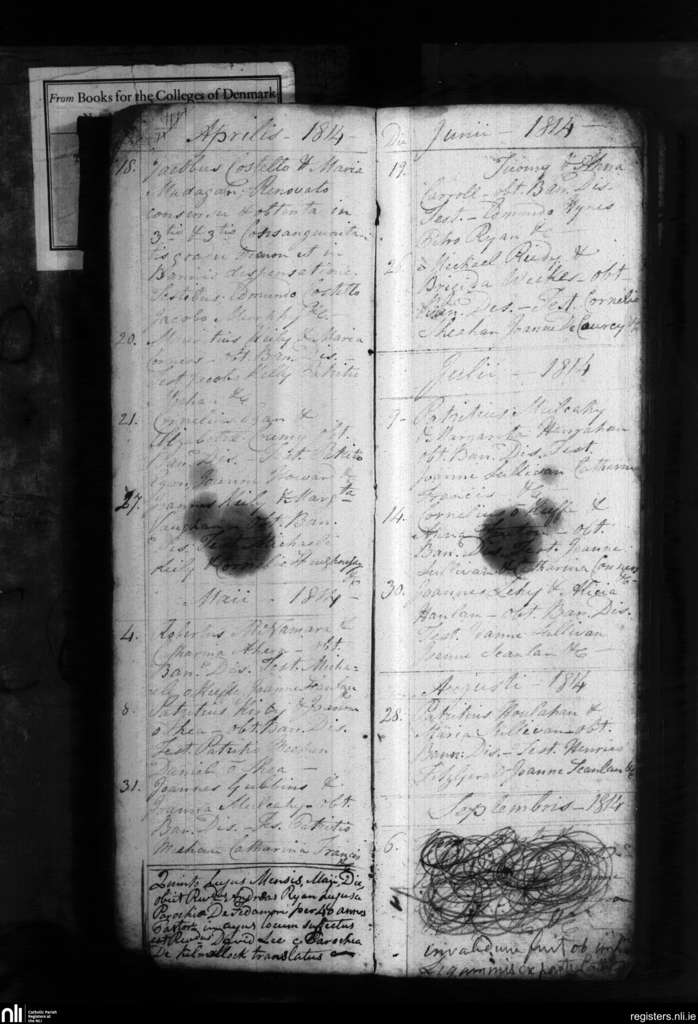 From Books for the Colleges of Denmark
Aprilis - 1814 -
18. Jacobus Costello & Maria
Madagan Renovato
consensu & obtenta in
3tio & 3tio Consanguinita
tis gradu necnon et in
Bannis dispensatione.
Testibus Edmundo Costello
Jacobo Murphy &c.
20. Mauritius Kiely & Maria
- obt. Ban. Dis. -
Test. Jacob Kiely Patritio
Mehan &c
21. Cornelius Egan &
obt.
Dis. Test. Patrito
Egan Joanna Howard &c
27. Joannes Kiely & Margta
Vaughan obt. Ban.
Dis. Test.
Kiely &
&c
Maii - 1814 -
4. Robertus McNamara &
Catharina Ahern - obt.
Ban. Dis. Test. Micha-
ele o Keefe Joanne Scanlan
8. Patritius Kirby & Joanna
o Shea - obt. Ban. Dis.
Test. Patritio
Daniele o Shea -
31. Joannes Gubbins &
Joanna Mulcahy - obt.
Ban. Dis. - Tes. Patritio
Mehan Catharina Francis
Quinto hujus Mensis, Maji, Die
obiit Revds Andreas Ryan hujusce
Parochiæ De per 40 annos
Pastor in cujus locum suffectus
est Revdus David Lee e Parochia
De Kilmallock translatus
Die Junii - 1814 -
19. Tuomy & Anna
Carroll - obt. Ban. Dis.
Test. - Edmundo Hynes
Petro Ryan &c -
26. Michael Reidy &
Brigida Weekes - obt.
Ban. Dis. - Test. Cornelio
Sheehan Joanne De Courcy &c
Julii - 1814
9 - Patritius Mulcahy
& Margarita Honrahan
obt. Ban. Dis. Test.
Joanne Sullivan Catharina
Francis &c
14. Cornelius o Keeffe &
Anna - obt.
Ban. Dis. Test. Joanne
Sullivan & Catharina
&c
30. Joannes Leky & Alicia
Hanlan - obt. Ban. Dis.
Test. Joanne Sullivan
Joanne Scanlan &c -
Augusti - 1814
28. Patritius Houlahan &
Maria Sullevan - obt.
Bann. Dis. - Test. Henrico
FitzGerald Joanne Scanlan &c
Septembris - 1814
6.
invalidum fuit ob
Ligaminis ex parte
nli Catholic Parish
Registers at
the NLI
registers.nli.ie